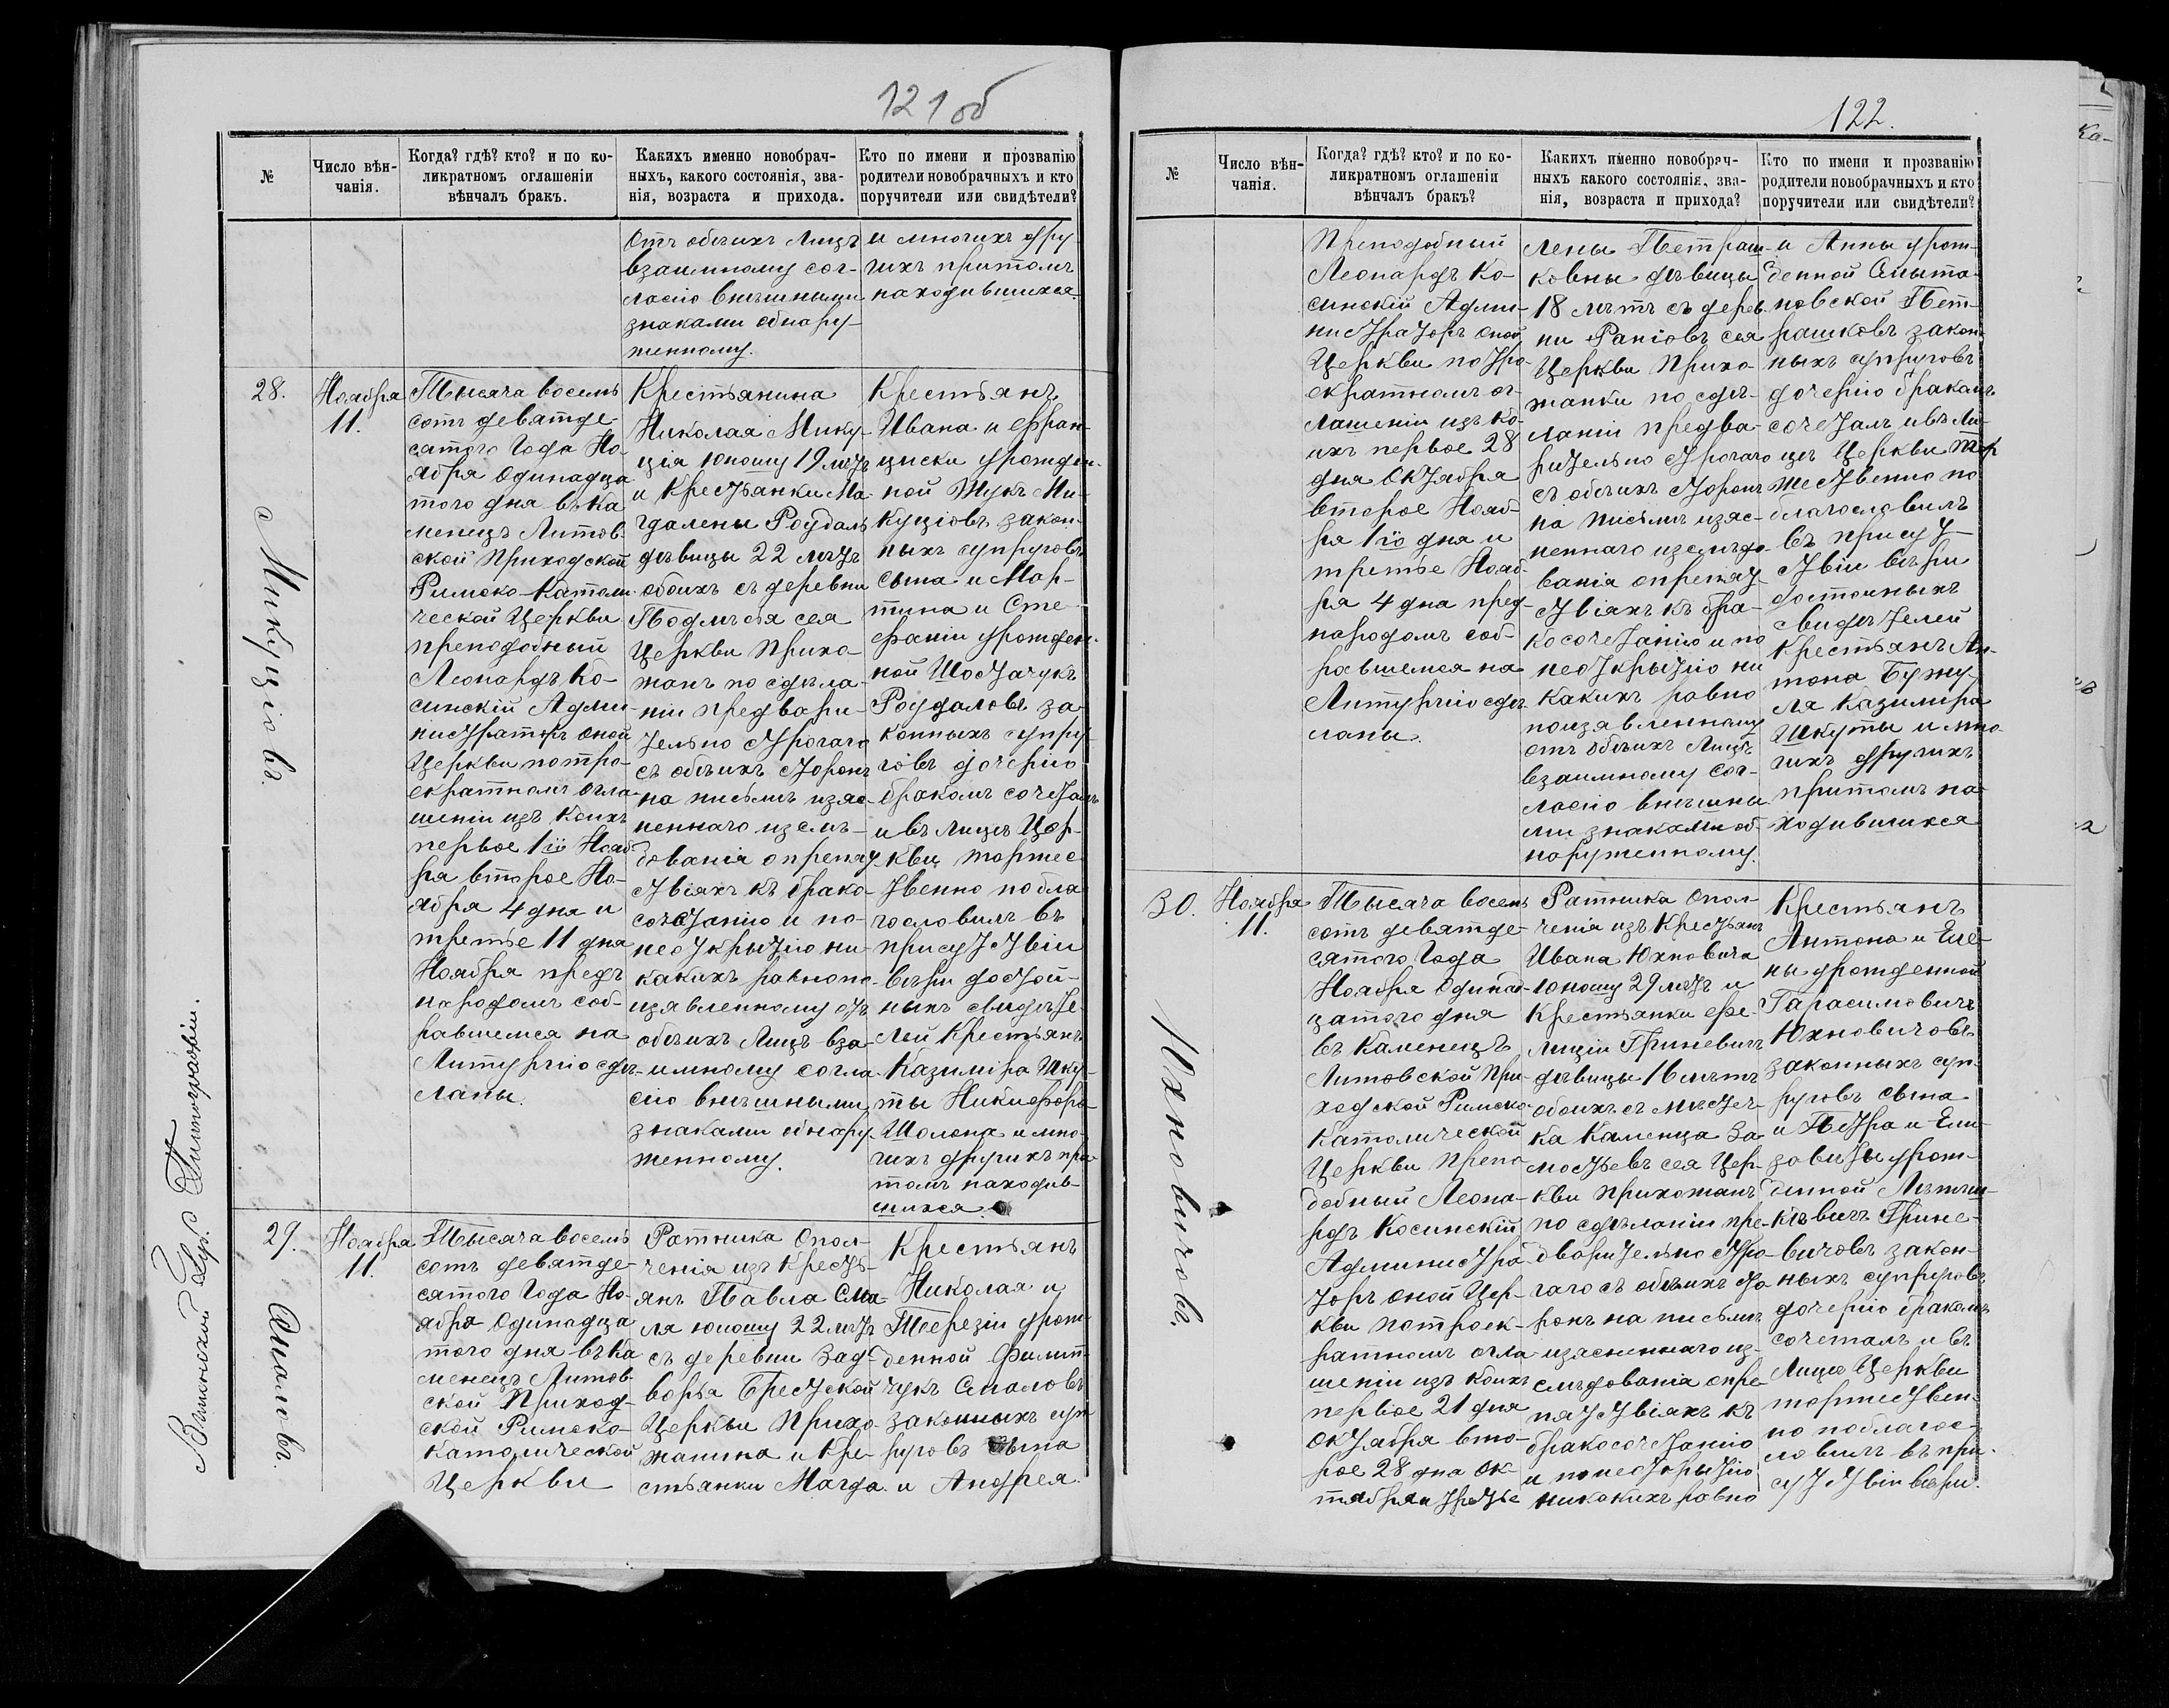 121 об
№
Число вѣн-
чанія.
Когда? гдѣ? кто? и по ко-
ликратномъ оглашеніи
вѣнчалъ бракъ.
Какихъ именно новобрач-
ныхъ, какого состоянія, зва-
нія, возраста и прихода.
Кто по имени и прозванію
родители новобрачныхъ и кто
поручители или свидѣтели?
Отъ обѣихъ Лицъ
взаимному сог-
ласію внѣшными
знаками обнару-
женному.
и многихъ дру
гихъ притомъ
находившихся.
28.
Микуціовъ.
Ноября
11.
Тысяча восемь
сотъ девятде-
сятого Года Но-
ября Одинадца
того дня въ Ка
менецъ Литов-
ской Приходской
Римско-Католи-
ческой Церкви
преподобный
Леонардъ Ко-
синскій Адми-
нистраторъ оной
Церкви по тро-
екратномъ огла-
шеніи изъ коихъ
первое 1го Нояб-
ря второе Но-
ября 4 дня и
третье 11 дня
Ноября предъ
народомъ соб-
равшемся на
Литургію сдѣ-
ланы.
Крестьянина
Николая Мику-
ція юношу 19 лѣтъ
и Крестьянки Ма-
гдалены Роудаль
дѣвицы 22 лѣтъ
обоихъ съ деревни
Подлѣсья сея
Церкви Прихо-
жанъ по сдѣла-
ніи предвари-
тельно строгаго
съ обѣихъ сторонъ
на письмѣ изяс-
неннаго изслѣ-
дованія о препят
ствіяхъ къ брако-
сочетанію и по
неоткрытію ни-
какихъ равно по
изявленному отъ
обѣихъ Лицъ вза-
имному согла-
сію внѣшными
знаками обнару-
женному.
Крестьянъ
Ивана и Фран-
циски урожден-
ной Жукъ Ми-
куціовъ закон-
ныхъ супруговъ
сына и Мар-
тина и Сте-
фаніи урожден-
ной Шостачукъ
Роудаловъ за-
конныхъ супру-
говъ дочерію
бракомъ сочеталъ
и въ лицѣ Цер-
кви торжес-
твенно побла
гословилъ въ
присутствіи
вѣры достой-
ныхъ свидѣте-
лей Крестьянъ
Казиміра Шку-
ты Никифора
Шолома и мно-
гихъ другихъ при
томъ находив-
шихся.
29.
Смалювъ.
Ноября
11.
Тысяча восемь
сотъ девятде-
сятого Года Но-
ября Одинадца
того дня въ Ка
менецъ Литов-
ской Приход-
ской Римско-
Католической
Церкви
Ратника Опол-
ченія изъ Кресть-
янъ Павла Сма-
ля юношу 22 лѣтъ
съ деревни Зад-
ворья Брестской
Церкви Прихо-
жанина и Кре-
стьянки Магда-
Крестьянъ
Николая и
Терезіи урож-
денной Филип-
чукъ Смаловъ
законныхъ суп-
руговъ сына
и Андрея
Виленской Губ. Типографіи.
122.
№
Число вѣн-
чанія.
Когда? гдѣ? кто? и по ко-
ликратномъ оглашеніи
вѣнчалъ бракъ?
Какихъ именно новобрач-
ныхъ какого состоянія, зва-
нія, возраста и прихода?
Кто по имени и прозванію
родители новобрачныхъ и кто
поручители или свидѣтели?
Преподобный
Леонардъ Ко-
синскій Адми-
нистраторъ оной
Церкви по тро-
екратномъ ог-
лашеніи изъ ко-
ихъ первое 28
дня Октября
второе Нояб-
ря 1го дня и
третье Нояб-
ря 4 дня пред-
народомъ соб-
равшемся на
Литургію сдѣ-
ланы.
лены Петраш-
ковны дѣвицы
18 лѣтъ съ дерев-
ни Раніовъ сея
Церкви Прихо-
жанки по сдѣ-
ланіи предва-
рительно строгаго
съ обѣихъ сторонъ
на письмѣ изяс-
неннаго изслѣдо-
ванія о препят-
ствіяхъ къ бра-
косочетанію и по
неоткрытію ни
какихъ равно
по изявленному
отъ обѣихъ Лицъ
взаимному сог-
ласію внѣшны
ми знаками об-
наруженному.
и Анны урож-
денной Смыта-
новской Пет-
рашковъ закон-
ныхъ супруговъ
дочерію бракомъ
сочеталъ и въ Ли-
цѣ Церкви тор
жественно по
благословилъ
въ присут-
ствіи вѣры
достойныхъ
свидѣтелей
Крестьянъ Ан-
тона Бужу-
ля Казимира
Шкуты и мно-
гихъ другихъ
притомъ на-
ходившихся
30.
Юхновичовъ.
Ноября
11.
Тысяча восемь
сотъ девятде-
сятого Года
Ноября Одинад-
цатого дня
въ Каменецъ
Литовской При-
ходской Римско-
Католической
Церкви Препо
добный Леона-
рдъ Косинскій
Администра-
торъ оной Цер-
кви по троек-
ратномъ огла-
шеніи изъ коихъ
первое 21 дня
Октября вто-
рое 28 дня Ок-
тября и третье
Ратника Опол-
ченія изъ Крестьянъ
Ивана Юхновича
юношу 29 лѣтъ и
Крестьянки Фе-
лиціи Гриневичъ
дѣвицы 16 лѣтъ
обоихъ съ мѣстеч-
ка Каменца За-
мостьевъ сея Цер-
кви прихожанъ
по сдѣланіи пре-
дварительно стро-
гаго съ обѣихъ сто
ронъ на письмѣ
изясненнаго из-
слѣдованія о пре
пятствіяхъ къ
бракосочетанію
и по неоткрытію
никакихъ равно
Крестьянъ
Антона и Еле-
ны урожденной
Гарасимовичъ
Юхновичовъ
законныхъ суп-
руговъ сына
и Петра и Ели-
заветы урож-
денной Лѣтыш-
кѣвичъ Грине-
вичовъ закон-
ныхъ супруговъ
дочерію бракомъ
сочеталъ и въ
Лицѣ Церкви
торжествен-
но поблагос-
ловилъ въ при-
сутствіи вѣры